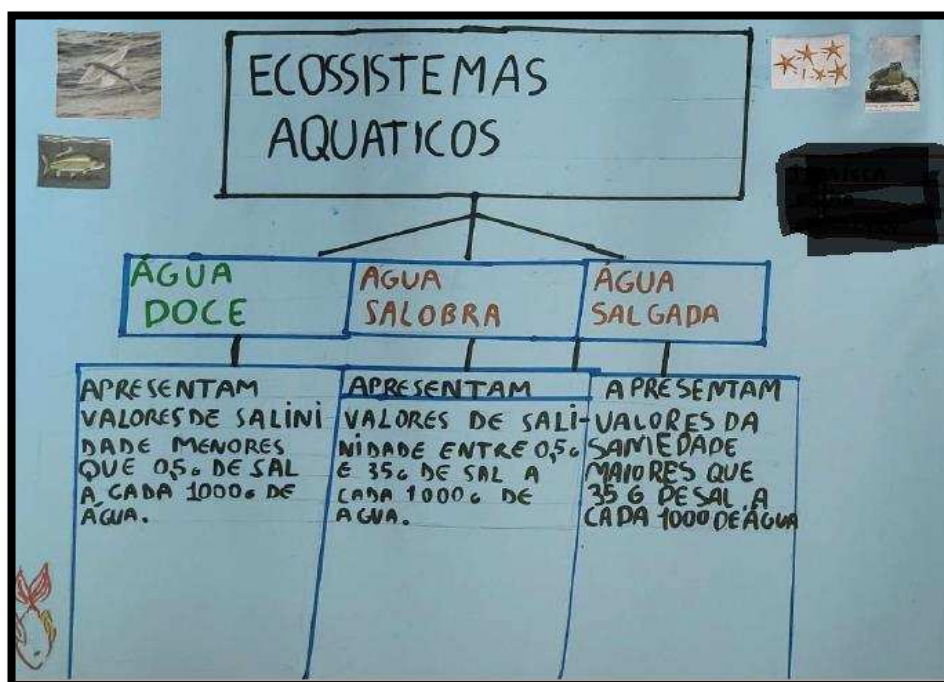 ECOSSISTEMAS
AQUATICOS
ÁGUA
DOCE
AGUA
SALOBRA
ÁGUA
SALGADA
APRESENTAM
VALORES DE SALINI
DADE MENORES
QUE 0,5G DE SAL
A CADA 1000G DE
ÁGUA.
APRESENTAM
VALORES DE SALI-
NIDADE ENTRE 0,5G
E 35G DE SAL A
CADA 1000G DE
AGUA.
APRESENTAM
VALORES DA
SANIEDADE
MAIORES QUE
35 G DE SAL A
CADA 1000 DE ÁGUA